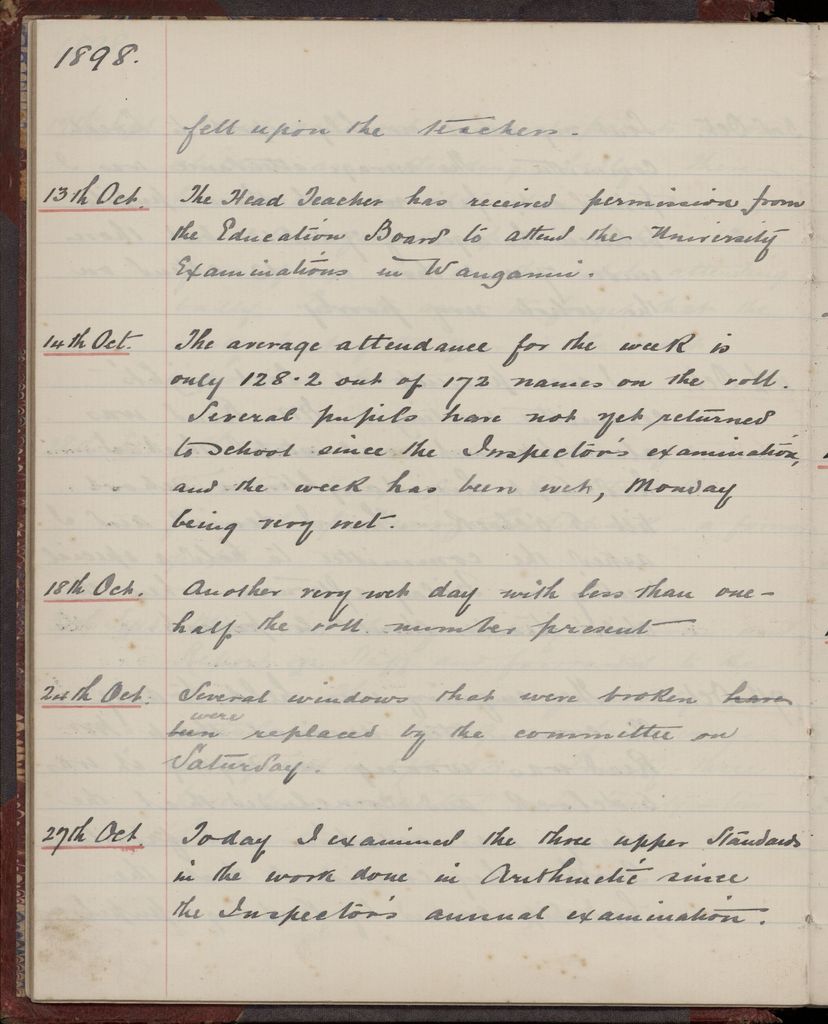 1898.
fell upon the teachers.
13th Oct. The Head Teacher has received permission from
the Education Board to attend the University
Examinations in Wanganui.
14th Oct. The average attendance for the week is
only 128.2 out of 172 names on the roll.
Several pupils have not yet returned
to school since the Inspector's examination,
and the week has been wet, Monday
being very wet.
18th Oct. Another very wet day with less than one-
half the roll number present
24th Oct. Several windows that were broken have
been were replaced by the committee on
Saturday.
27th Oct. Today I examined the three upper Standards
in the work done in Arithmetic since
the Inspector's annual examination.